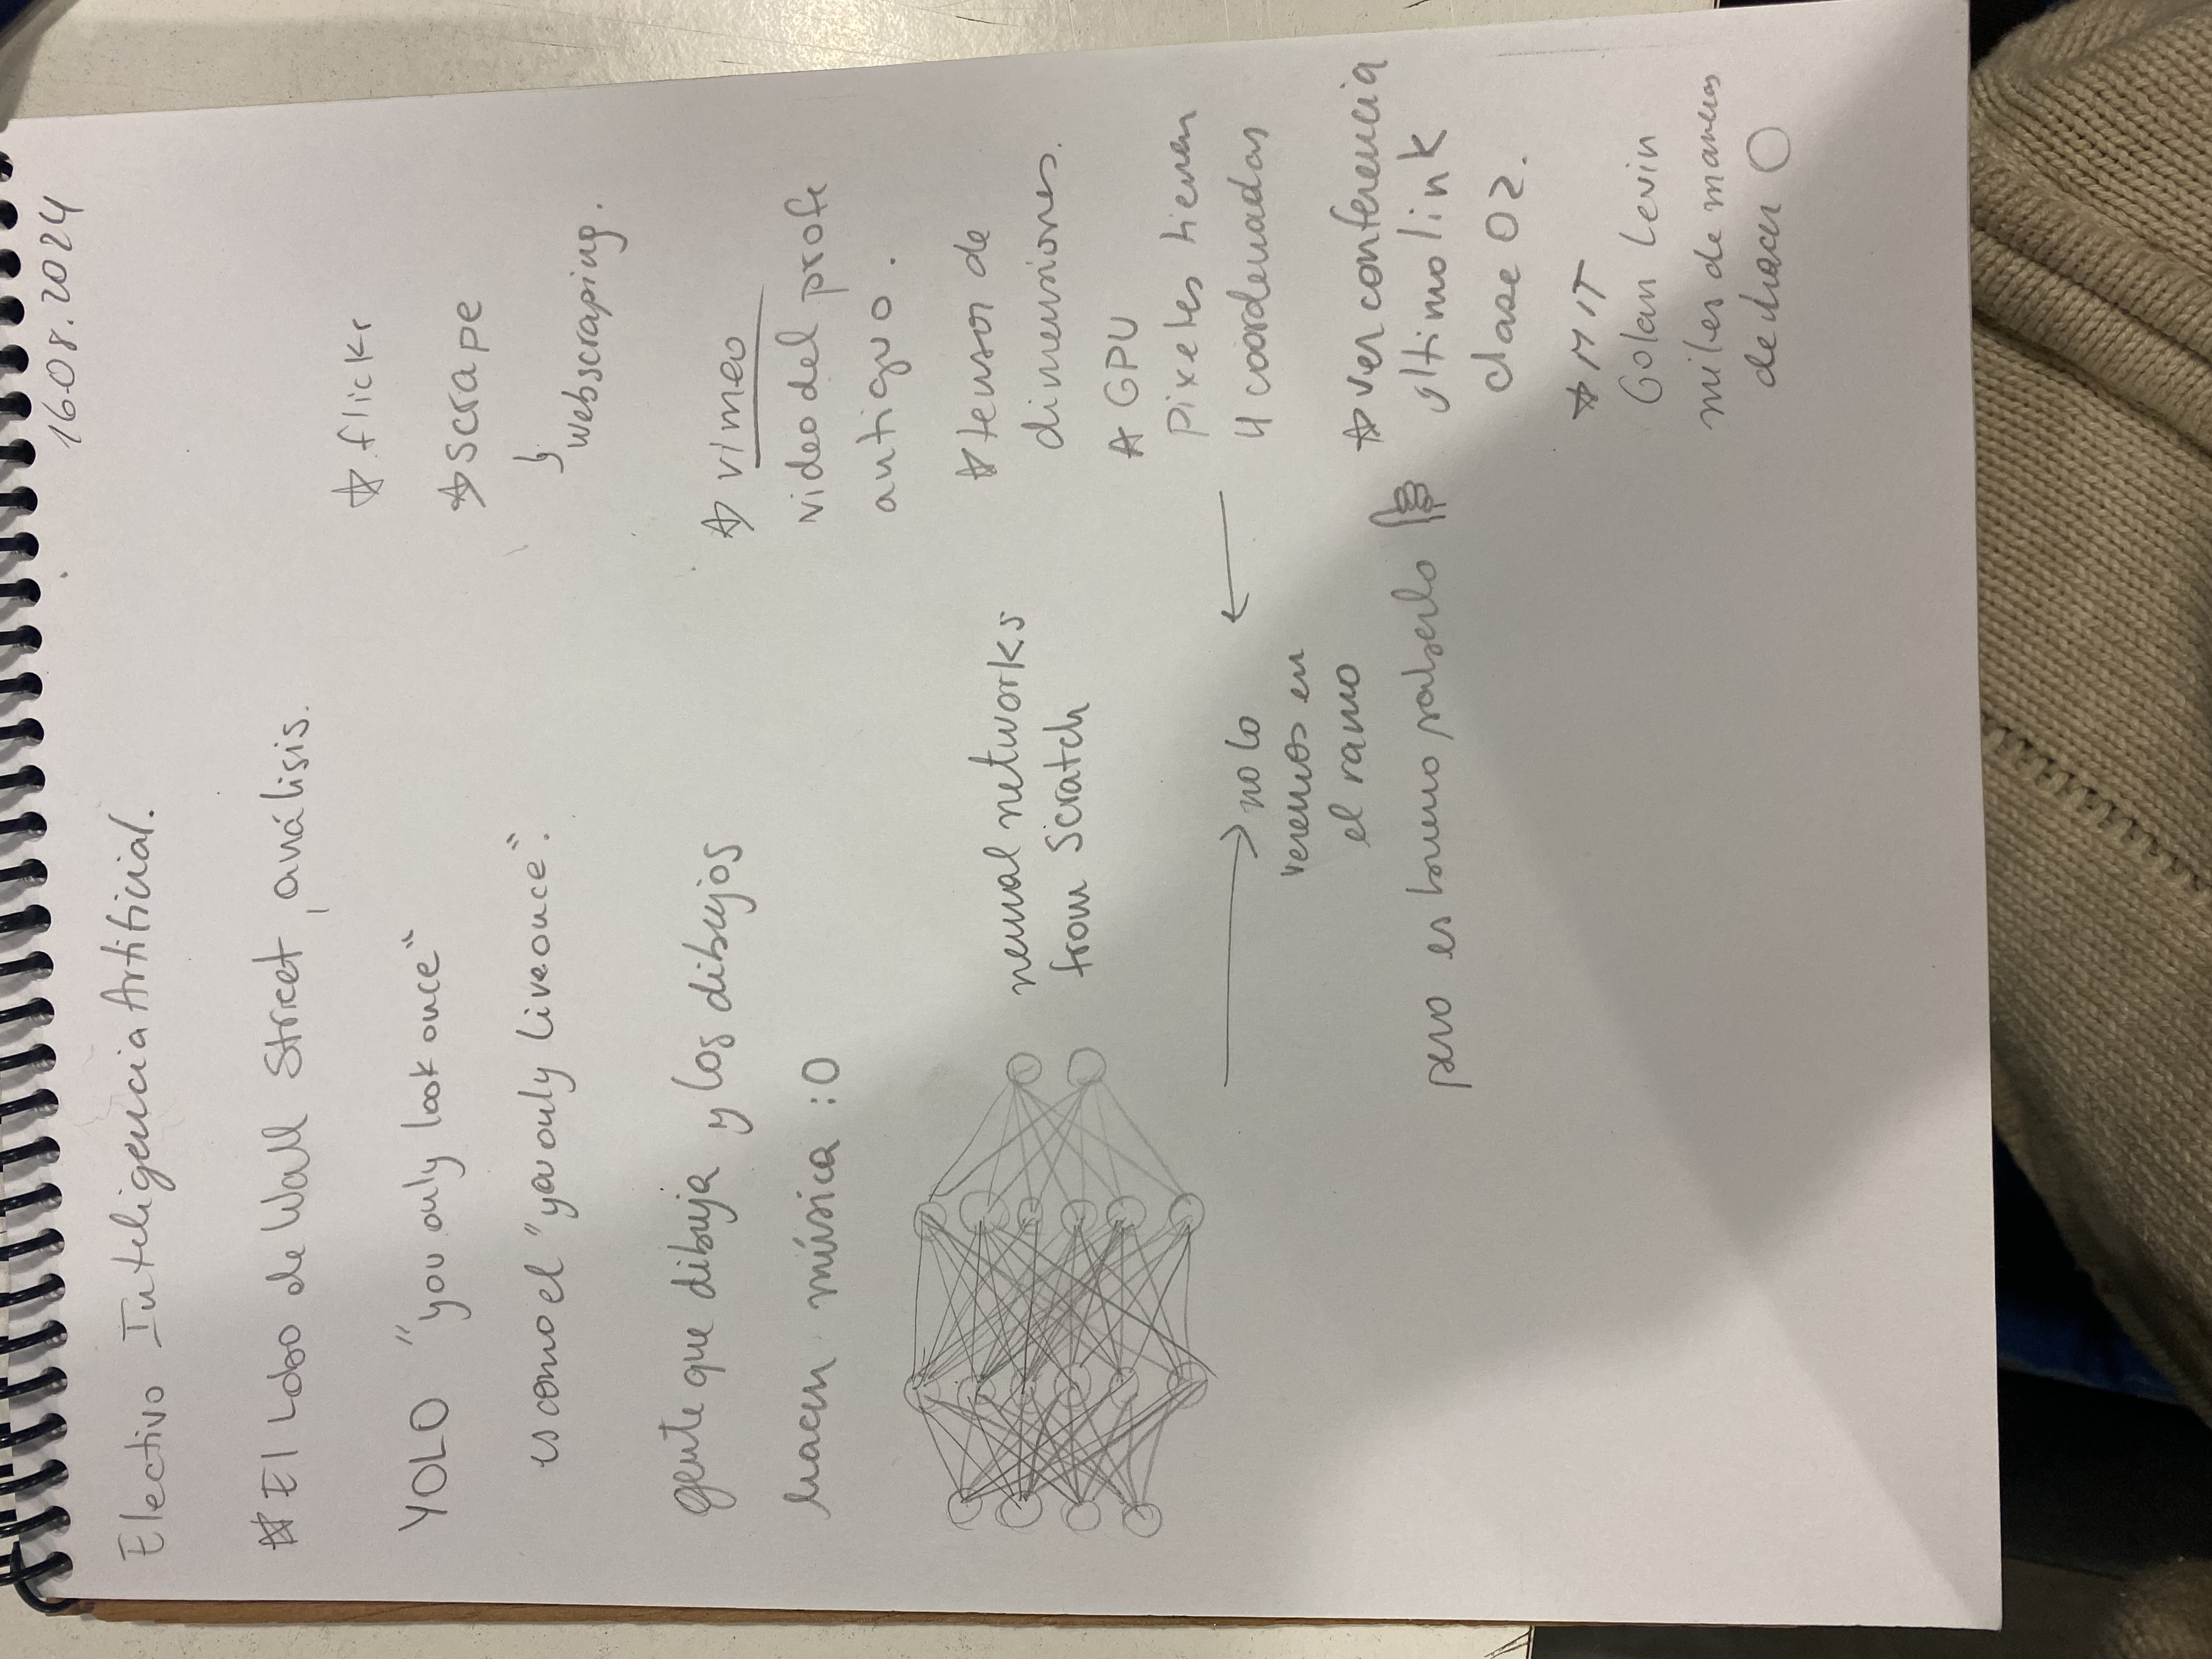 16.08.2024
Electivo Inteligencia Artificial.
☆ El Lobo de Wall Street, análisis.
YOLO "you only look once"
es como el "you only live once".
gente que dibuja y los dibujos
hacen música :O
neural networks
from Scratch
no lo
veremos en
el ramo
pero es bueno saberlo
☆ flickr
☆ scrape
↳ webscraping.
☆ vimeo
video del profe
antiguo.
☆ tensor de
dimensiones.
☆ GPU
pixeles tienen
4 coordenadas
☆ ver conferencia
ultimo link
clase 02.
☆ MIT
Golan Levin
miles de maneras
de hacer ○